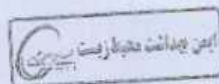 ایمن بهداشت محیط زیست